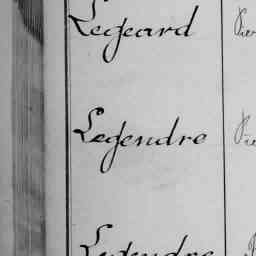 Legeard
Legendre
Legendre